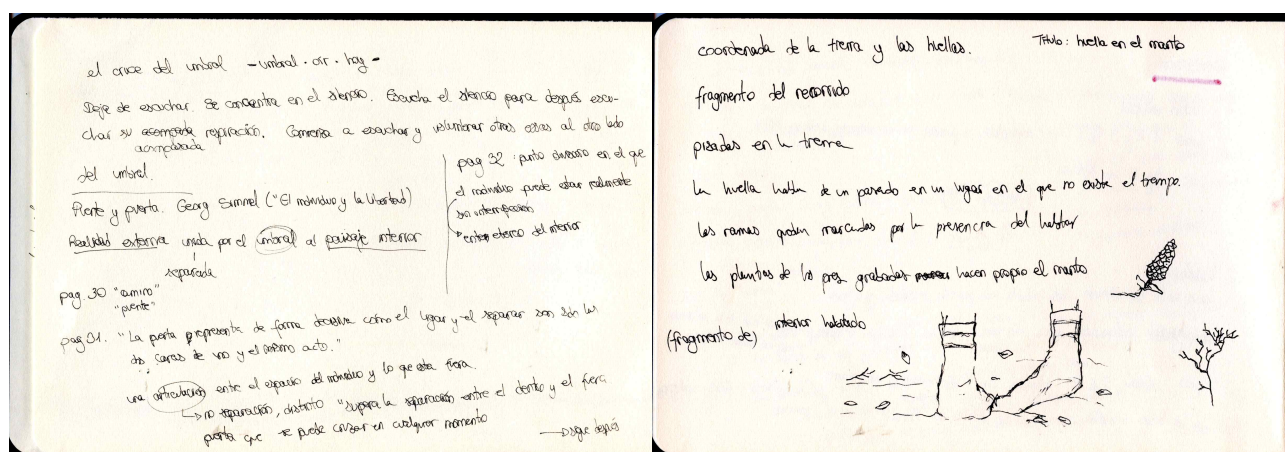 el cruce del umbral - umbral · oir · hay -
Deja de escuchar. Se concentra en el silencio. Escucha el silencio para después escu-
char su acompasada respiración. Comienza a escuchar y vislumbrar otras cosas al otro lado
acompasada
del umbral.
Puente y puerta. Georg Simmel ("El individuo y la libertad)
Realidad externa unida por el umbral al paisaje interior
separada
pag. 30 "camino"
"puente"
pag 31. "La puerta representa de forma decisiva cómo el ligar y el separar son sólo las
dos caras de uno y el mismo acto."
una articulación entre el espacio del individuo y lo que esta fuera.
no separación, distinto "supera la separación entre el dentro y el fuera
puerta que se puede cruzar en cualquier momento
sigue después
pag 32 : punto en el que
el individuo puede estar realmente
sin interrupción
del interior
coordenada de la tierra y las huellas.
Titulo: huella en el manto
fragmento del recorrido
pisadas en la tierra
la huella habla de un pasado en un lugar en el que no existe el tiempo.
las ramas quedan marcadas por la presencia del habitar
las plantas de los pies grabadas hacen propio el manto
(fragmento de) interior habitado